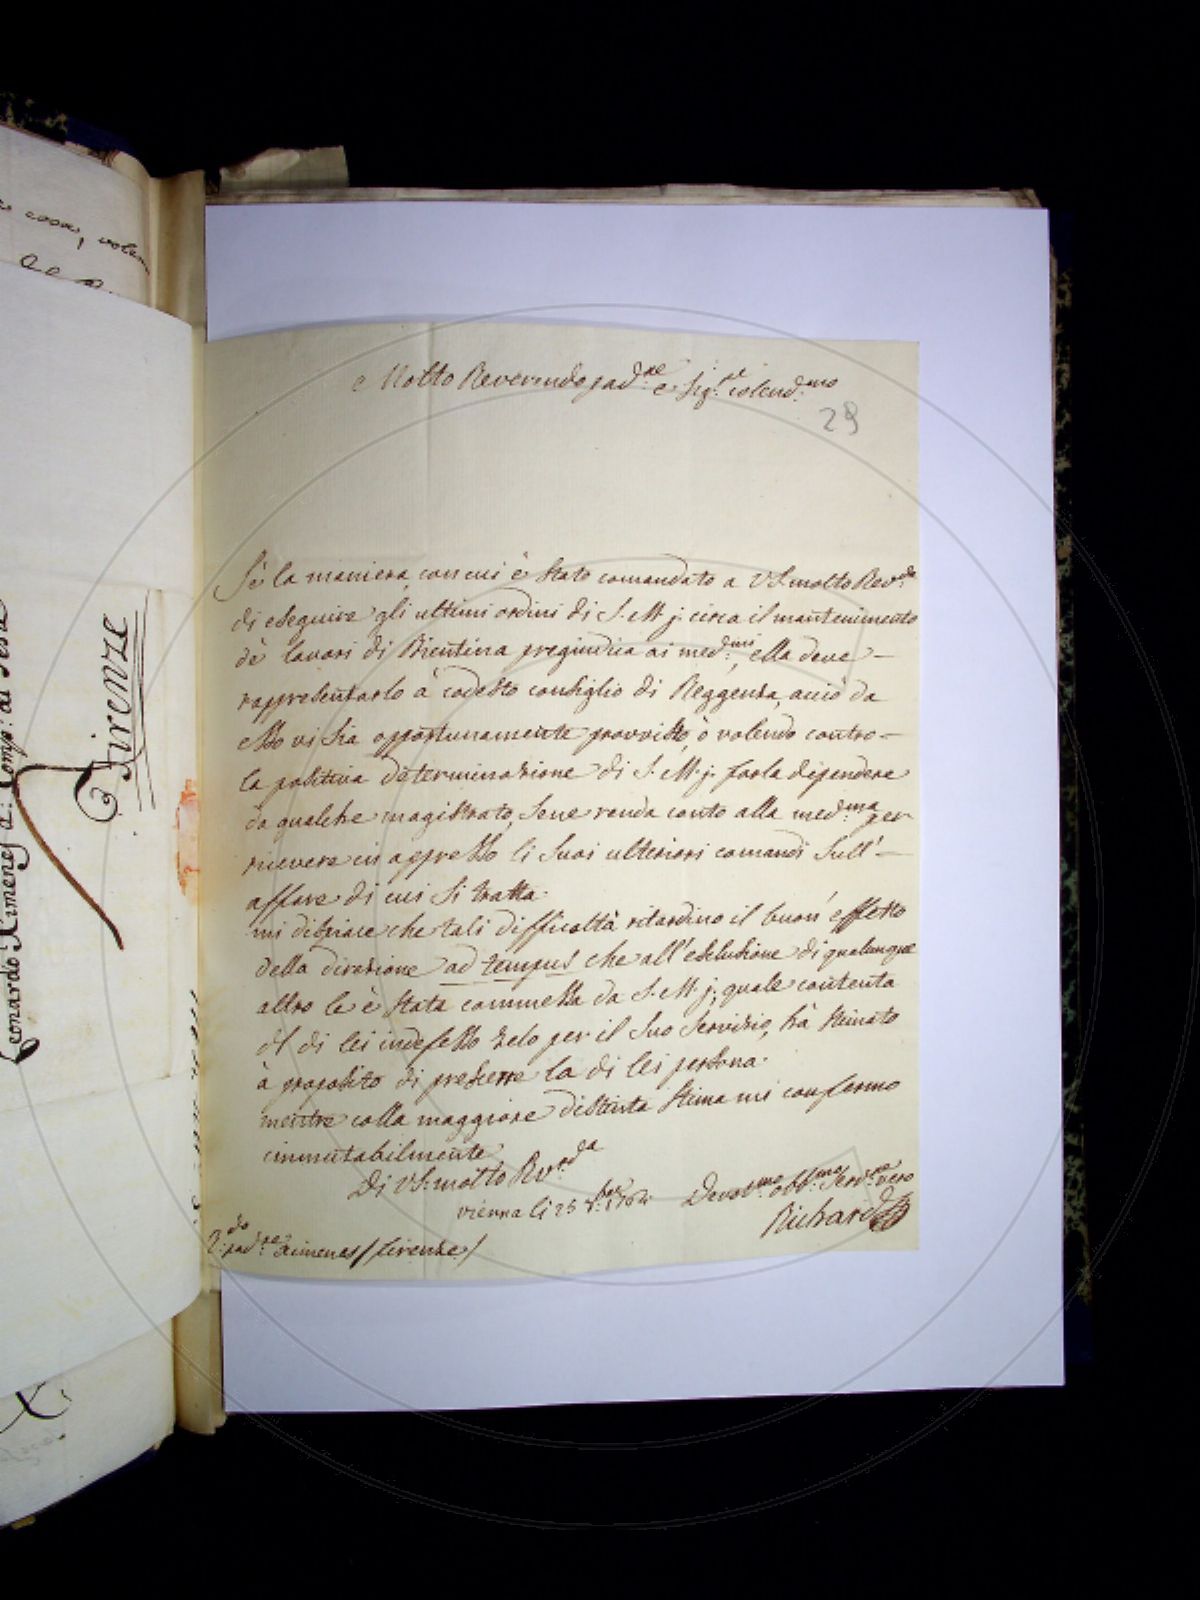 Molto Reverendo pad.re e Sig.re colend.mo
29
Sè la maniera, con cui è stato comandato a VS. molto Rev.da
di eseguire gli ultimi ordini di S. M. j. circa il mantenimento
dè lavori di Bientina pregiudica ai med.mi, ella deve
rappresentarlo à codesto consiglio di Reggenza, acciò da
esso vi sia opportunamente provvisto, ò volendo contro
la positiva determinazione di S. M. j. farla dipendere
da qualche magistrato, sene renda conto alla med.ma per
ricevere in appresso li suoi ulteriori comandi sull'
affare di cui si tratta.
mi dispiace che tali difficoltà ritardino il buon' effetto
della direzione ad tempus che all'esclusione di qualunque
altro le è stata commessa da S. M. j., quale contenta
di lei indefesso zelo per il suo servizio, hà stimato
à proposito di preferire la di lei persona.
mentre colla maggiore distinta stima mi confermo
immutabilmente
Di VS. molto Rev.da
vienna li 25 8.bre 1764 Devot.mo obb.mo Serv.re vero
Richard
pad.re Ximenes / firenze /
Leonardo Ximenes d: Comp: di Jesu
Firenze